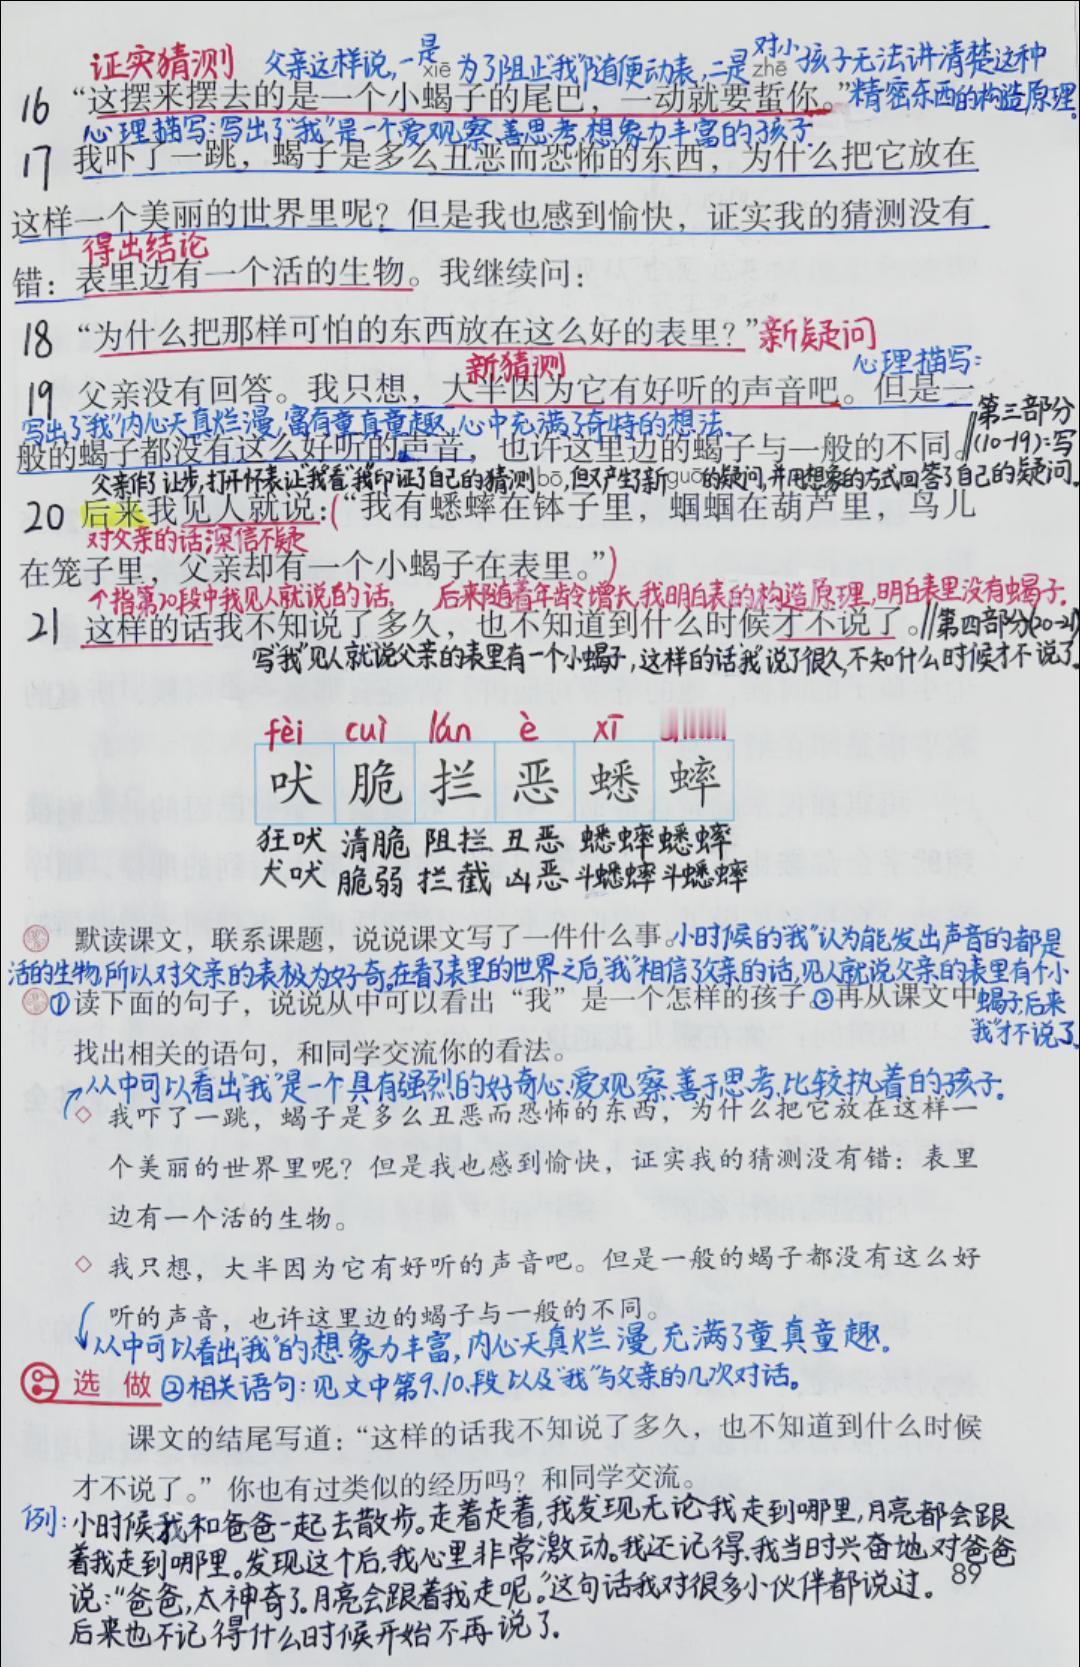 证实猜测 父亲这样说,一是为了阻止"我"随便动表,二是对小孩子无法讲清楚这种
xiē zhē
16 “这摆来摆去的是一个小蝎子的尾巴，一动就要蜇你。”精密东西的构造原理。
心理描写:写出了"我"是一个爱观察、善思考、想象力丰富的孩子.
17 我吓了一跳，蝎子是多么丑恶而恐怖的东西，为什么把它放在
这样一个美丽的世界里呢？但是我也感到愉快，证实我的猜测没有
得出结论
错：表里边有一个活的生物。我继续问：
18 “为什么把那样可怕的东西放在这么好的表里？”新疑问
新猜测 心理描写:
19 父亲没有回答。我只想，大半因为它有好听的声音吧。但是一
写出了"我"内心天真烂漫,富有童真童趣,心中充满了奇特的想法.
般的蝎子都没有这么好听的声音，也许这里边的蝎子与一般的不同。//第三部分(10-19):写
父亲作了让步,打开怀表让"我"看."我"印证了自己的猜测,但又产生了新的疑问,并用想象的方式回答了自己的疑问.
bō guō
20 后来我见人就说：(“我有蟋蟀在钵子里，蝈蝈在葫芦里，鸟儿
对父亲的话深信不疑
在笼子里，父亲却有一个小蝎子在表里。”)
↑指第20段中我见人就说的话. 后来随着年龄增长,我明白表的构造原理,明白表里没有蝎子.
21 这样的话我不知说了多久，也不知道到什么时候才不说了。//第四部分(20-21)
写"我"见人就说父亲的表里有一个小蝎子,这样的话"我"说了很久,不知什么时候才不说了.
fèi cuì lán è xī
吠 脆 拦 恶 蟋 蟀
狂吠 清脆 阻拦 丑恶 蟋蟀 蟋蟀
犬吠 脆弱 拦截 凶恶 斗蟋蟀 斗蟋蟀
默读课文，联系课题，说说课文写了一件什么事。小时候的"我"认为能发出声音的都是
活的生物,所以对父亲的表极为好奇。在看了表里的世界之后,"我"相信了父亲的话,见人就说父亲的表里有个小
蝎子,后来"我"才不说了.
①读下面的句子，说说从中可以看出“我”是一个怎样的孩子。②再从课文中
找出相关的语句，和同学交流你的看法。
从中可以看出"我"是一个具有强烈的好奇心、爱观察、善于思考、比较执着的孩子.
◇ 我吓了一跳，蝎子是多么丑恶而恐怖的东西，为什么把它放在这样一
个美丽的世界里呢？但是我也感到愉快，证实我的猜测没有错：表里
边有一个活的生物。
◇ 我只想，大半因为它有好听的声音吧。但是一般的蝎子都没有这么好
听的声音，也许这里边的蝎子与一般的不同。
从中可以看出"我"的想象力丰富,内心天真烂漫,充满了童真童趣.
选做 ②相关语句:见文中第9、10、段以及"我"与父亲的几次对话。
课文的结尾写道：“这样的话我不知说了多久，也不知道到什么时候
才不说了。”你也有过类似的经历吗？和同学交流。
例:小时候我和爸爸一起去散步。走着走着,我发现无论我走到哪里,月亮都会跟
着我走到哪里。发现这个后,我心里非常激动。我还记得,我当时兴奋地对爸爸
说:"爸爸,太神奇了.月亮会跟着我走呢。"这句话我对很多小伙伴都说过。
后来也不记得什么时候开始不再说了.
89